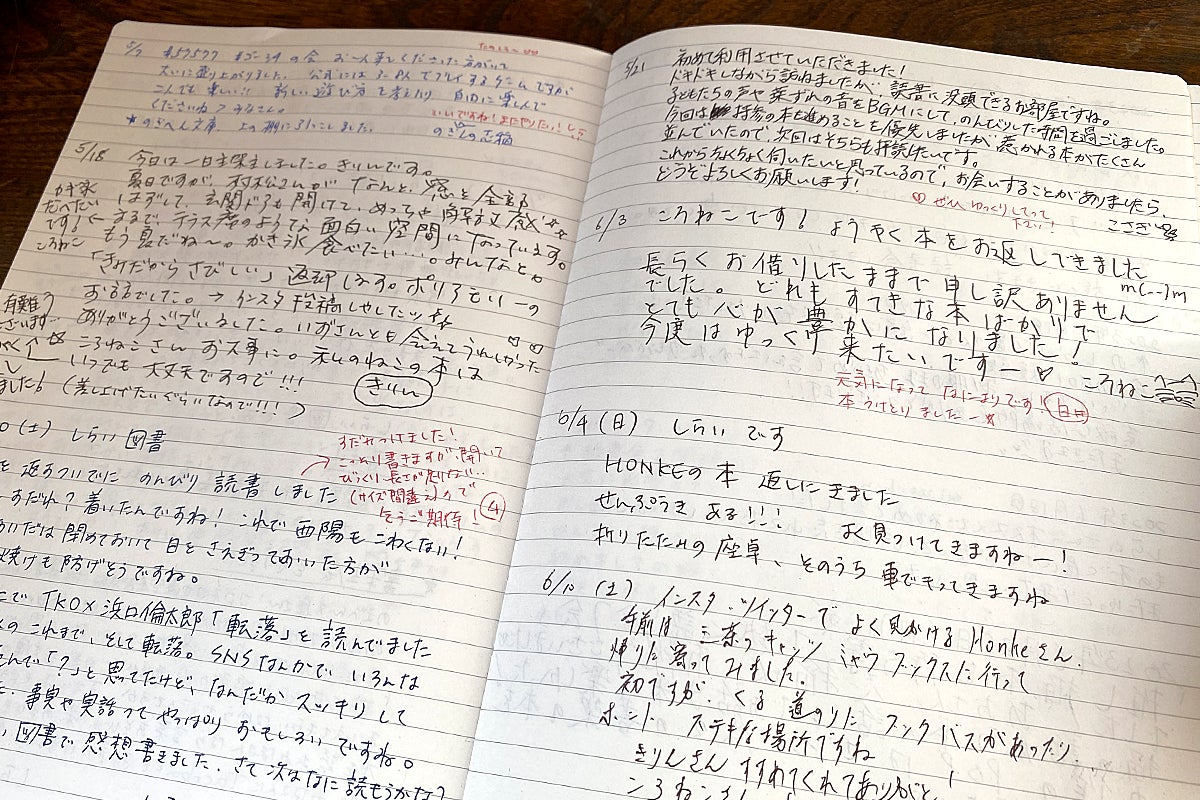 5/7
の会
大いに盛り上がりました。公式には3-8人でプレイするゲームですが
二人でも楽しい!! 新しい遊び方を考えたり 自由に楽しんで
くださいね
いいですね!またやりたい!
上の棚に
5/18 今日は一日主堂しました。きりんです。
夏日ですが、村松さんが なんと、窓を全部
はずして、玄関ドアも開けて、めっちゃ解放感☆☆
まるで、テラス席のような面白い空間になっています。
もう夏だね〜。かき氷 食べたい…。みんなと
かき氷
たべたい
です!
ころねこ
「きみだからさびしい」返却します。ポリアモリーの
おはなしでした。→インスタ投稿しやした
ありがとうございました。いがさんとも会えてうれしかった
ころねこさん お大事に。私のねこの本は
いつでも 大丈夫ですので!!!
(差し上げたいぐらいなので!!!)
きりん
有難う
ございます…
(土) しらい 図書
すだれつけました!
こっそり書きますが、開いて
びっくり長さが足りない…
(サイズ間違え)ので
乞うご期待!
を返すついでに のんびり 読書しました
すだれ?着いたんですね!これで 西陽もこわくない!
あいだは閉めておいて 日をさえぎってあいた方が
焼けも防げそうですね。
で「KO×浜口倫太郎「転落」を読んでました
のこれまで、そして転落。SNSなんかで、いろんな
「?」と思ってたけど、なんだか スッキリして
事実や実話って やっぱり おもしろいですね。
図書で 感想書きました。さて次はなに読もうかな?
5/21 初めて利用させていただきました!
ドキドキしながら訪ねましたが、読書に没頭できるお部屋ですね。
子どもたちの声や葉ずれの音をBGMにして、のんびりした時間を過ごしました。
今回は持参の本を進めることを優先しましたが、惹かれる本がたくさん
並んでいたので、次回はそちらも拝読したいです。
これからちょくちょく伺いたいと思っているので、お会いすることがありましたら、
どうぞよろしくお願いします!
こさぎ
ぜひ ゆっくりしてって
下さい!
6/3 ころねこです! ようやく本をお返しできました
m(_ _)m
長らくお借りしたままで申し訳ありません
でした。どれもすてきな本ばかりで
とても心が豊かになりました!
今度はゆっくり来たいですー♡ ころねこ
元気になって なによりです!
本うけとりました
6/4 (日) しらいです
HONKEの本 返しにきました
せんぷうき ある!!! よく見つけてきますねー!
折りたたみの座卓、そのうち車でもってきますね
6/10 (土) インスタ・ツイッターでよく見かけるHonkeさん。
午前は三茶のキャッツミャウブックスに行って
帰りに寄ってみました。
初ですが、くる道のりにブックバスがあったり、
ホント ステキな場所ですね
きりんさん すすめてくれてありがと!
ころねこ